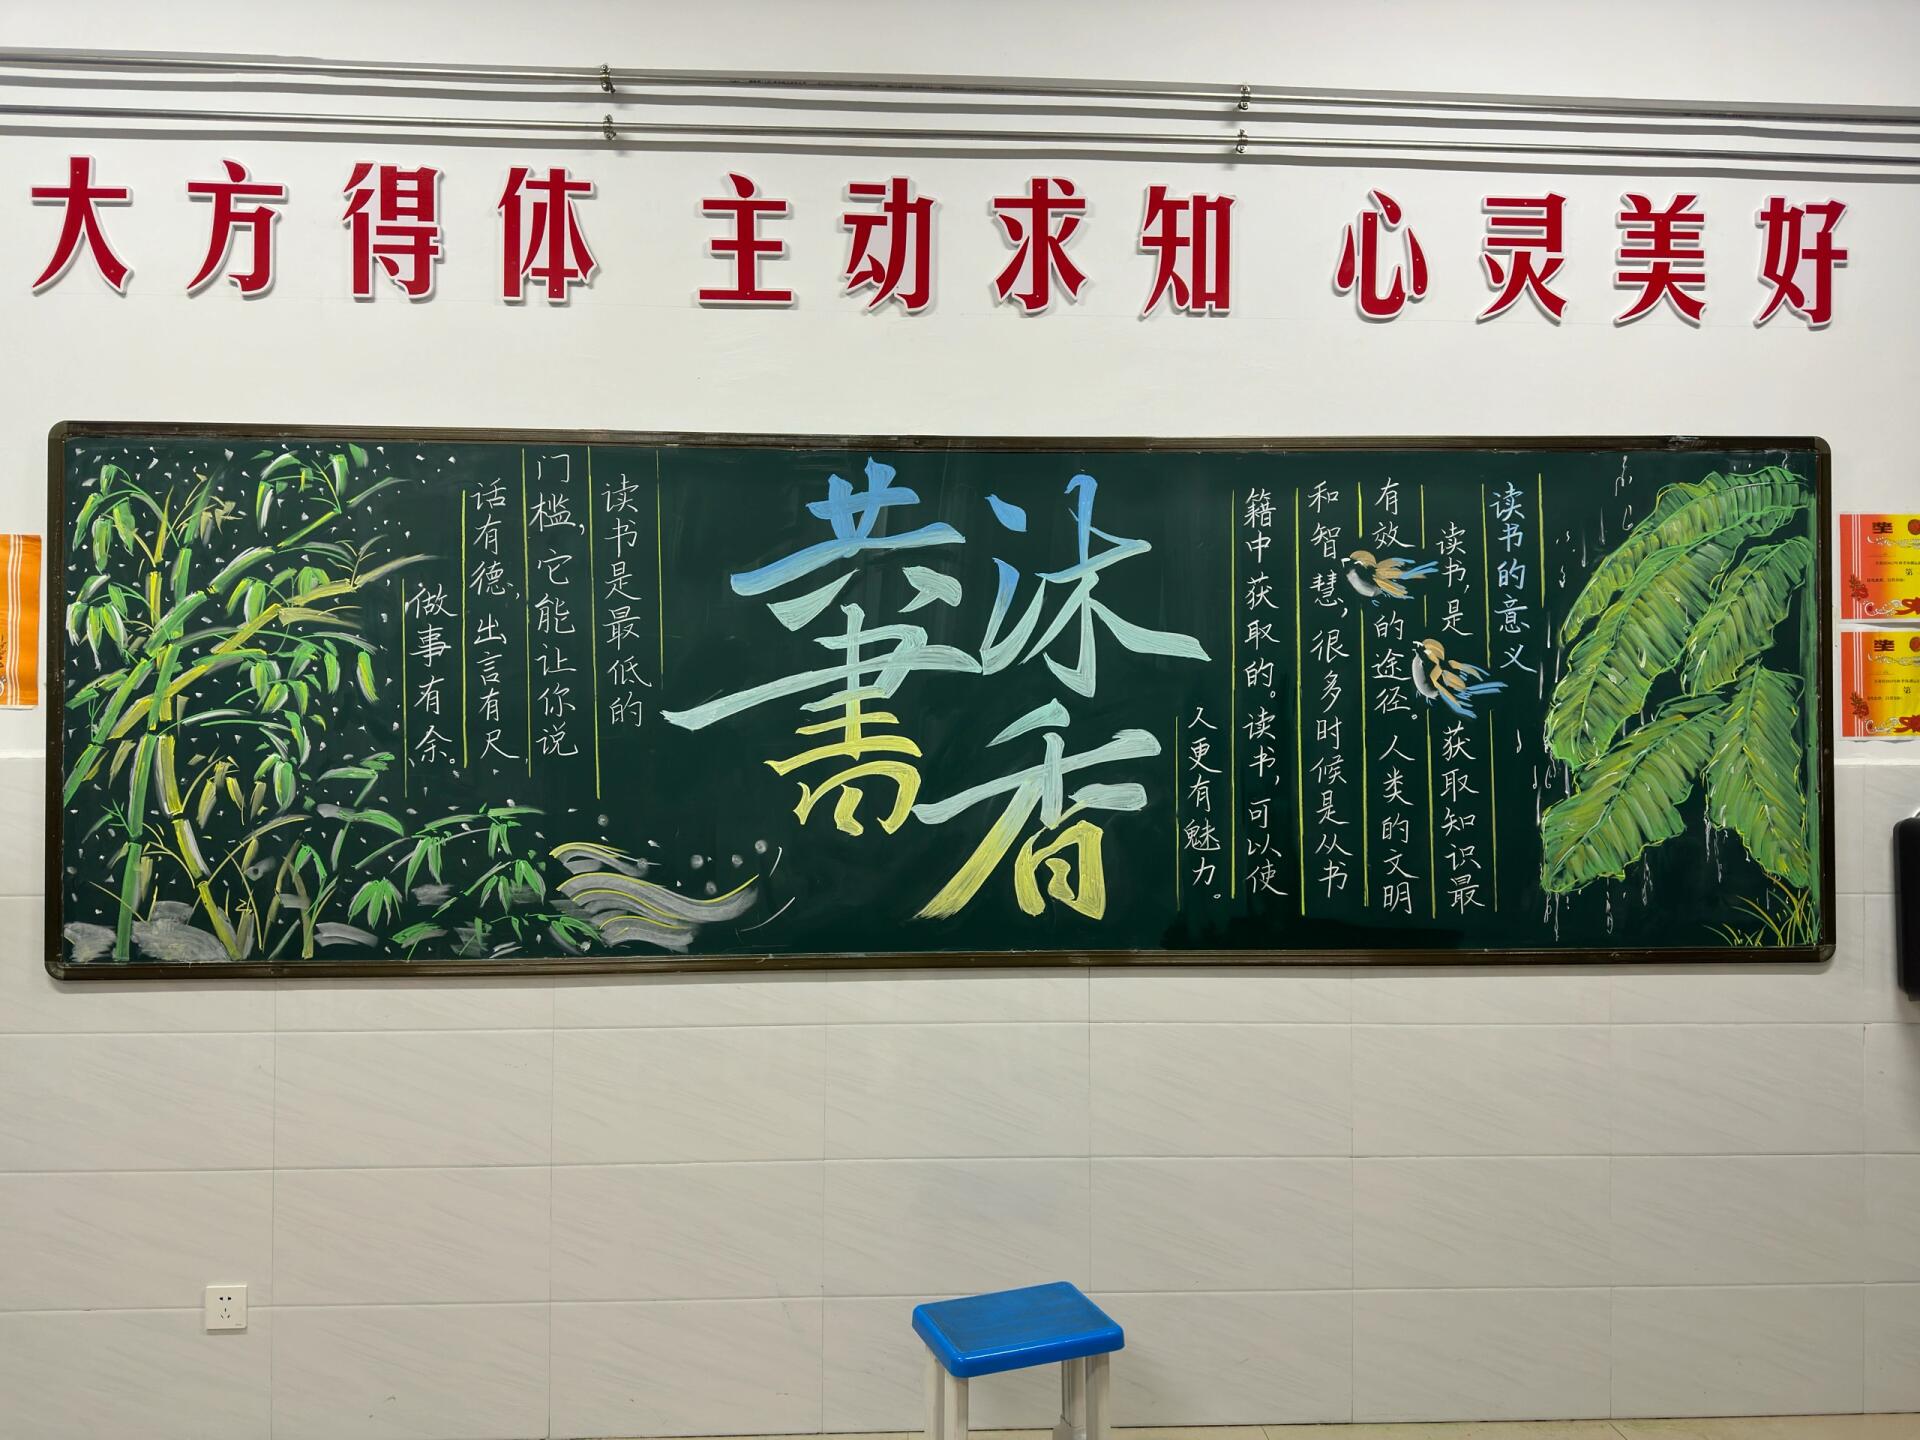 大方得体 主动求知 心灵美好
读书的意义
读书,是获取知识最
有效的途径。人类的文明
和智慧,很多时候是从书
籍中获取的。读书,可以使
人更有魅力。
共沐
書香
读书是最低的
门槛,它能让你说
话有德,出言有尺
做事有余。